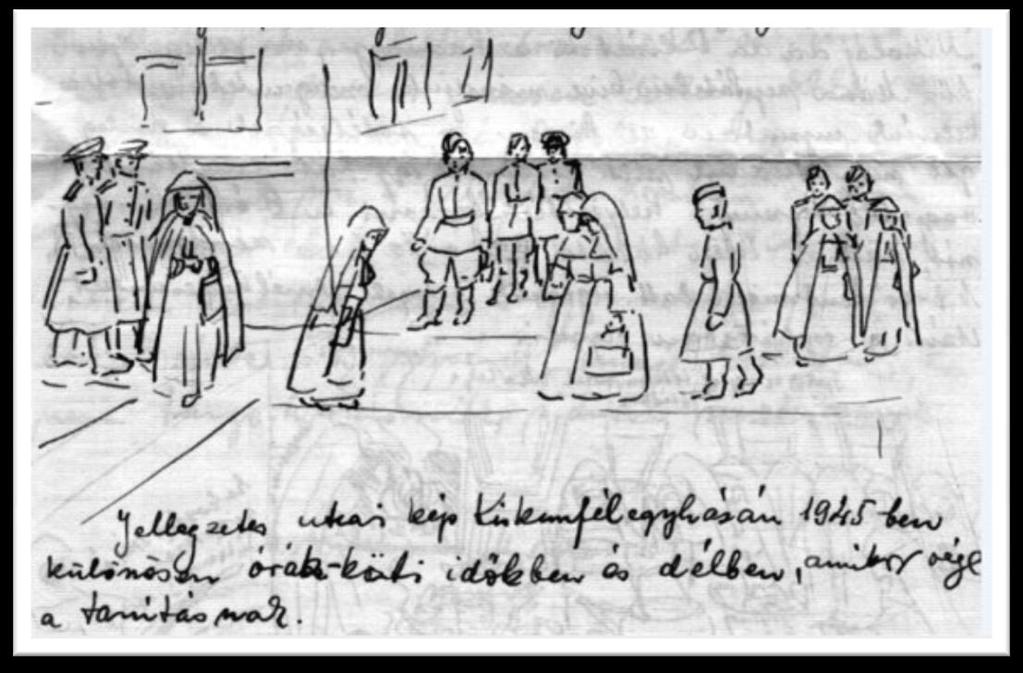 Jellegzetes utcai kép Kiskunfélegyházán 1945-ben
különösen órák-közti időkben és délben, amikor vége
a tanításnak.